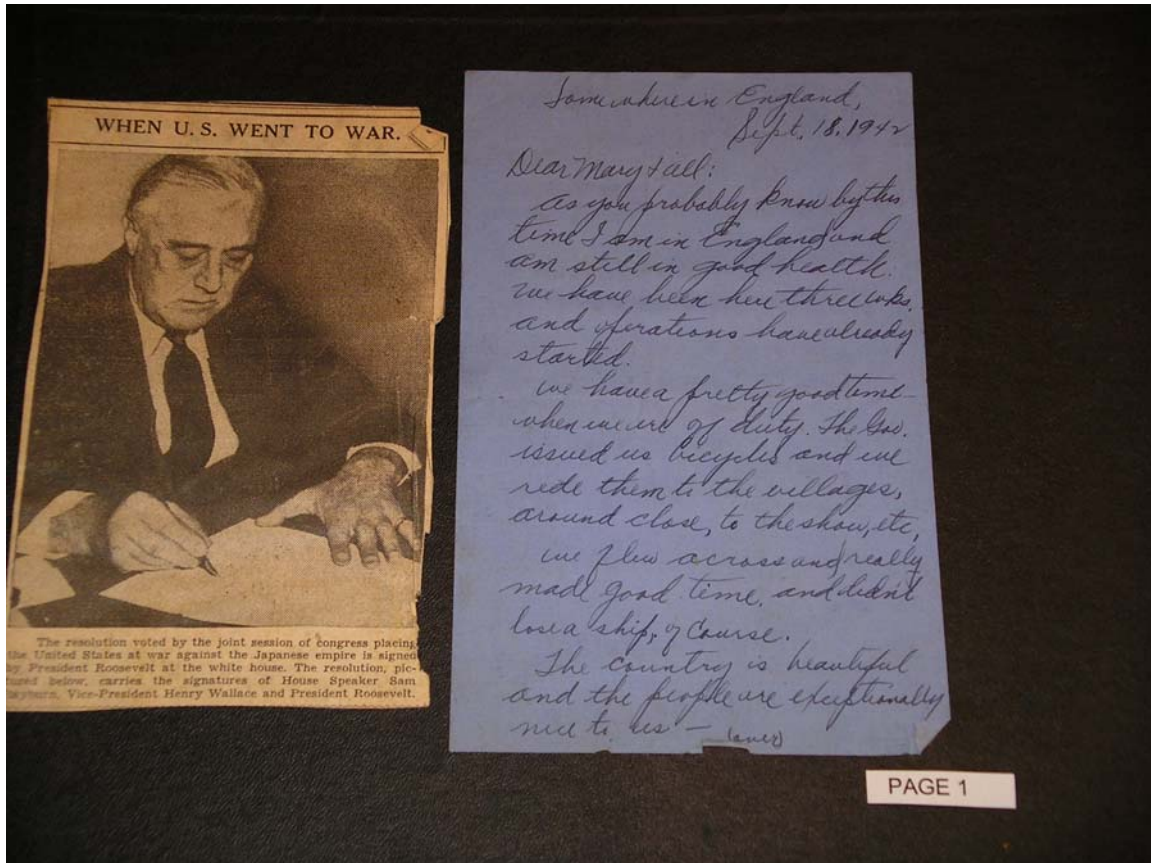 WHEN U. S. WENT TO WAR.
The resolution voted by the joint session of congress placing
the United States at war against the Japanese empire is signed
by President Roosevelt at the white house. The resolution, pic-
tured below, carries the signatures of House Speaker Sam
Rayburn, Vice-President Henry Wallace and President Roosevelt.
Somewhere in England,
Sept. 18. 1942
Dear Mary & all:
As you probably know by this
time I am in England and
am still in good health.
We have been here three wks.
and operations have already
started.
We have a pretty good time
when we are off duty. The Gov.
issued us bicycles and we
ride them to the villages,
around close, to the show, etc,
We flew across and really
made good time, and didn't
lose a ship, of course.
The country is beautiful
and the people are exceptionally
nice to us — (over)
PAGE 1